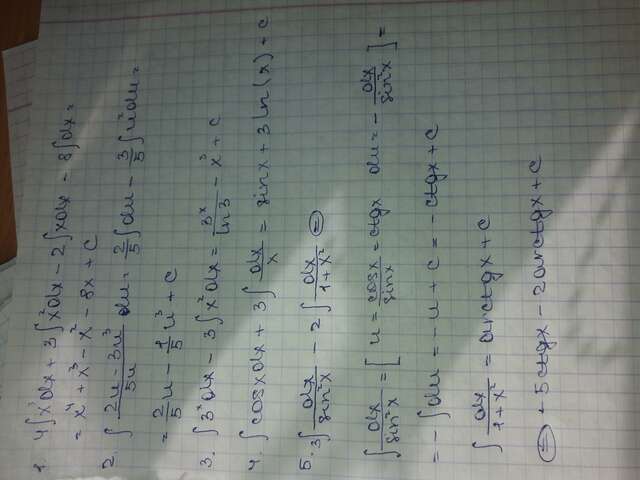 1. 4∫x³dx + 3∫x²dx - 2∫xdx - 8∫dx =
= x⁴ + x³ - x² - 8x + C
2. ∫ (2u - 3u³)/(5u) du = 2/5 ∫du - 3/5 ∫u²du =
= 2/5 u - 1/5 u³ + C
3. ∫3ˣdx - 3∫x²dx = 3ˣ/ln3 - x³ + C
4. ∫cosxdx + 3∫dx/x = sinx + 3ln(x) + C
5. 3∫dx/sin²x - 2∫dx/(1+x²) =
∫dx/sin²x = [ u = cosx/sinx = ctgx du = - dx/sin²x ] =
= -∫du = -u + C = -ctgx + C
∫dx/(1+x²) = arctgx + C
= - 5ctgx - 2arctgx + C